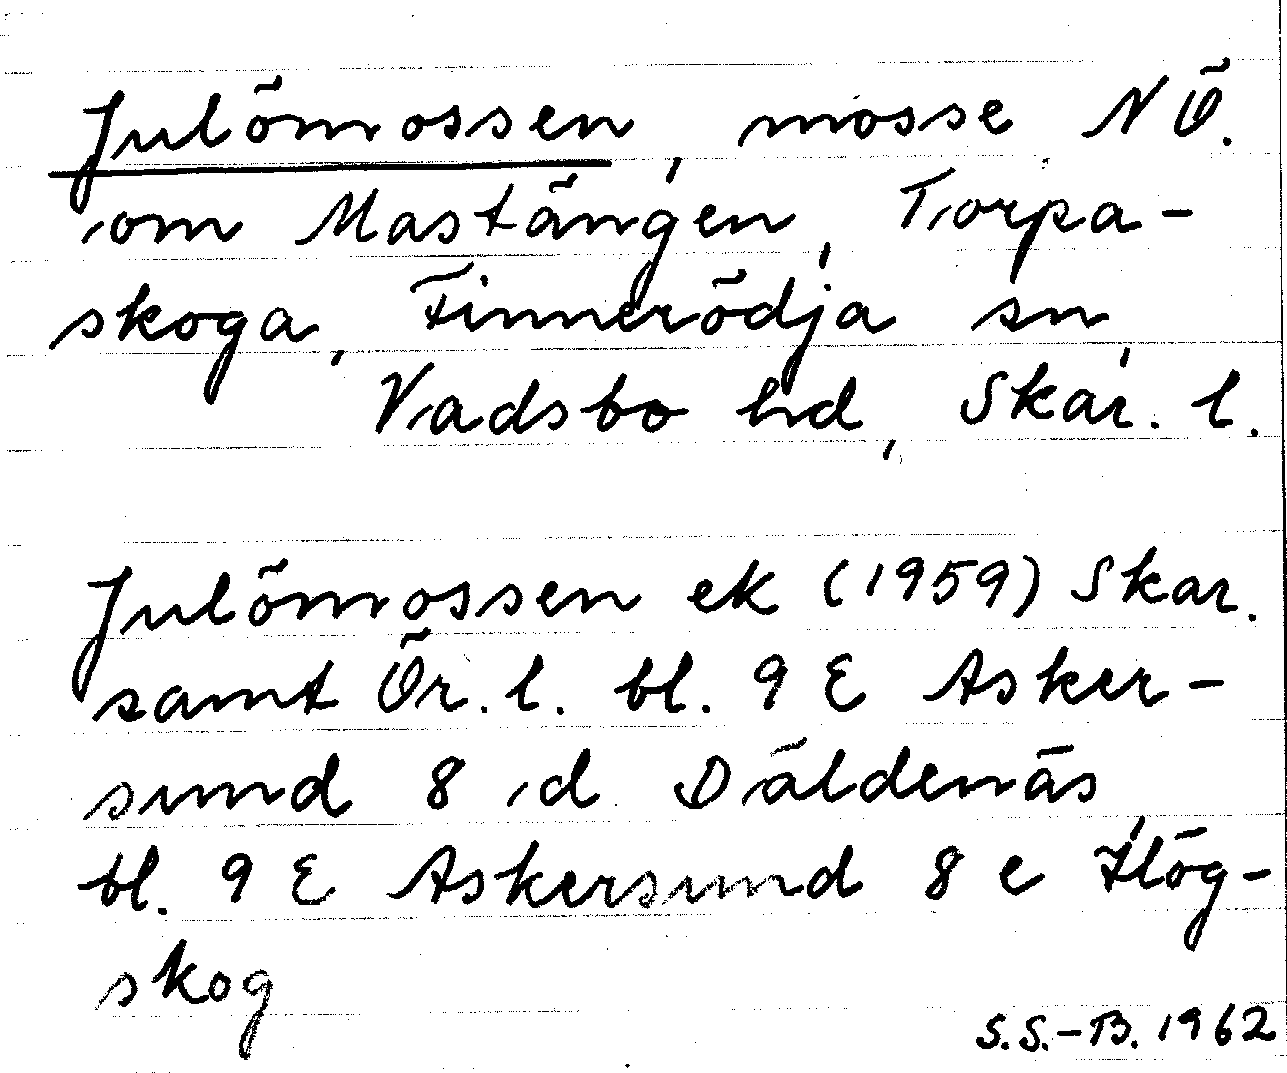 Julömossen, mosse NÖ.
om Mastängen, Torpa-
skoga, Finnerödja sn,
Vadsbo hd, Skar. l.
Julömossen ek (1959) Skar.
samt Ör. l. bl. 9 E Asker-
sund 8 d Däldenäs,
bl. 9 E Askersund 8 e Flög-
skog
S.S.-B. 1962